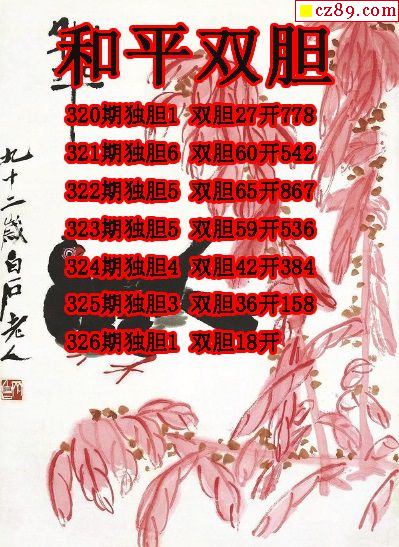 cz89.com
和平双胆
320期独胆1 双胆27开778
321期独胆6 双胆60开542
322期独胆5 双胆65开867
323期独胆5 双胆59开536
324期独胆4 双胆42开384
325期独胆3 双胆36开158
326期独胆1 双胆18开
九十二岁白石老人